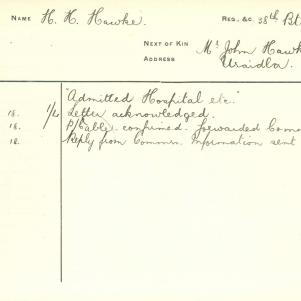 NAME H. H. Hawke. REG. &C. 38th Bt
NEXT OF KIN Mr John Hawk
ADDRESS Uraidla.
"Admitted Hospital etc."
18. 1/4 Letter acknowledged.
18. P/Cable. confirmed. forwarded Comm
18. Reply from Commn. Information sent